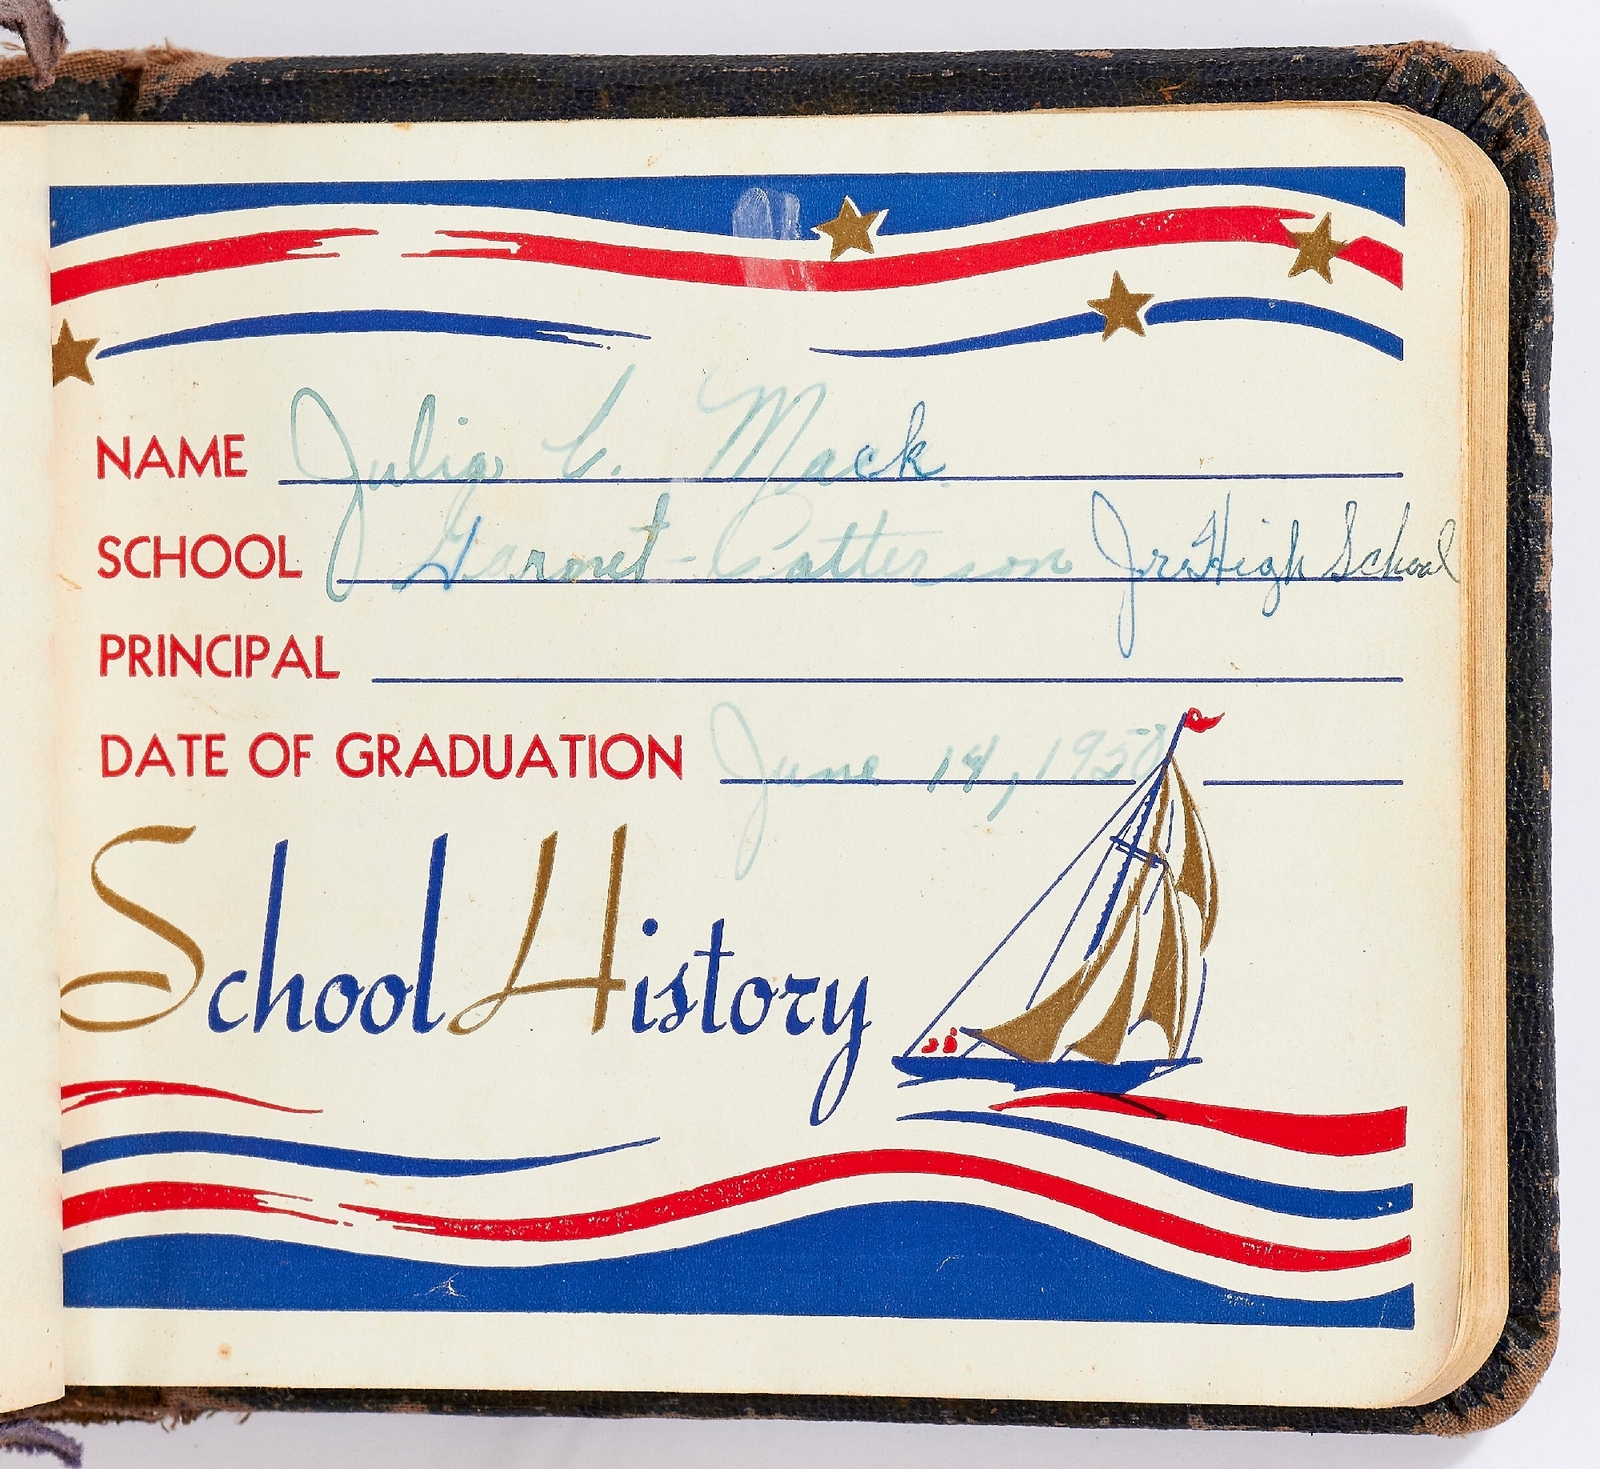 NAME Julia C. Mack
SCHOOL Garnet-Patterson Jr High School
PRINCIPAL
DATE OF GRADUATION June 14, 1950
School History